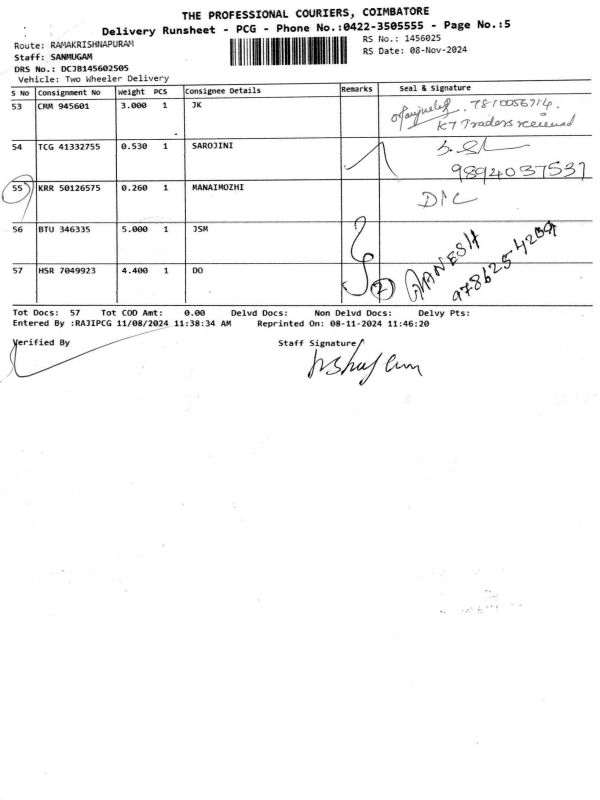 THE PROFESSIONAL COURIERS, COIMBATORE
Delivery Runsheet - PCG - Phone No.:0422-3505555 - Page No.:5
Route: RAMAKRISHNAPURAM
RS No.: 1456025
Staff: SANMUGAM
RS Date: 08-Nov-2024
DRS No.: DCJB145602505
Vehicle: Two Wheeler Delivery
S No Consignment No Weight PCS Consignee Details Remarks Seal & Signature
53 CMM 945601 3.000 1 JK 7810056714.
KT Traders received
54 TCG 41332755 0.530 1 SAROJINI
9894037531
55 KRR 50126575 0.260 1 MANAIMOZHI D/C
56 BTU 346335 5.000 1 JSM
57 HSR 7049923 4.400 1 DO 2 GANESH
9786254209
Tot Docs: 57 Tot COD Amt: 0.00 Delvd Docs: Non Delvd Docs: Delvy Pts:
Entered By :RAJIPCG 11/08/2024 11:38:34 AM Reprinted On: 08-11-2024 11:46:20
Verified By Staff Signature